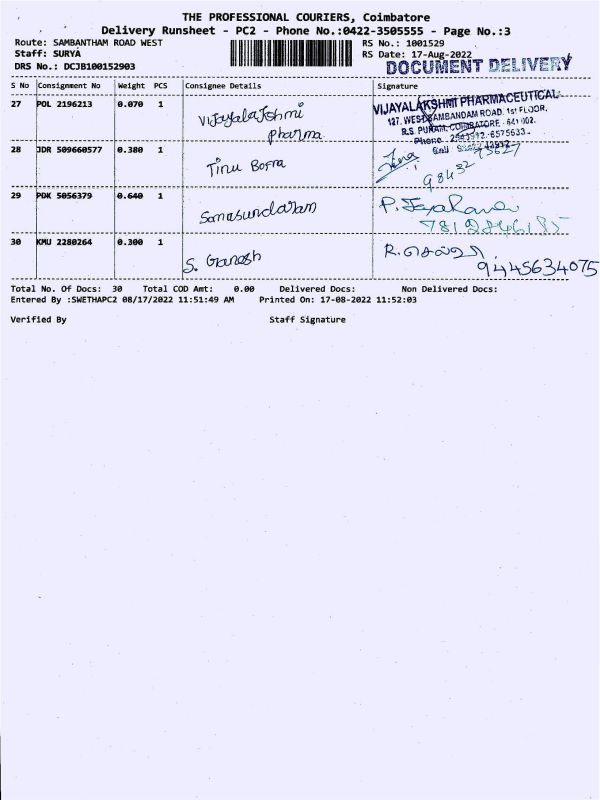 THE PROFESSIONAL COURIERS, Coimbatore
Delivery Runsheet - PC2 - Phone No.:0422-3505555 - Page No.:3
Route: SAMBANTHAM ROAD WEST RS No.: 1001529
Staff: SURYA RS Date: 17-Aug-2022
DRS No.: DCJB100152903 DOCUMENT DELIVERY
S No Consignment No Weight PCS Consignee Details Signature
27 POL 2196213 0.070 1 Vijayalakshmi Pharma
VIJAYALAKSHMI PHARMACEUTICAL
127, WEST SAMBANDAM ROAD, 1st FLOOR,
R.S. PURAM, COIMBATORE - 641 002.
28 JDR 509660577 0.380 1 Tinu Borra
98432
29 PDK 5056379 0.640 1 Somasundaram P. Jeyarani
30 KMU 2280264 0.300 1 S. Ganesh R.
9445634075
Total No. Of Docs: 30 Total COD Amt: 0.00 Delivered Docs: Non Delivered Docs:
Entered By :SWETHAPC2 08/17/2022 11:51:49 AM Printed On: 17-08-2022 11:52:03
Verified By Staff Signature